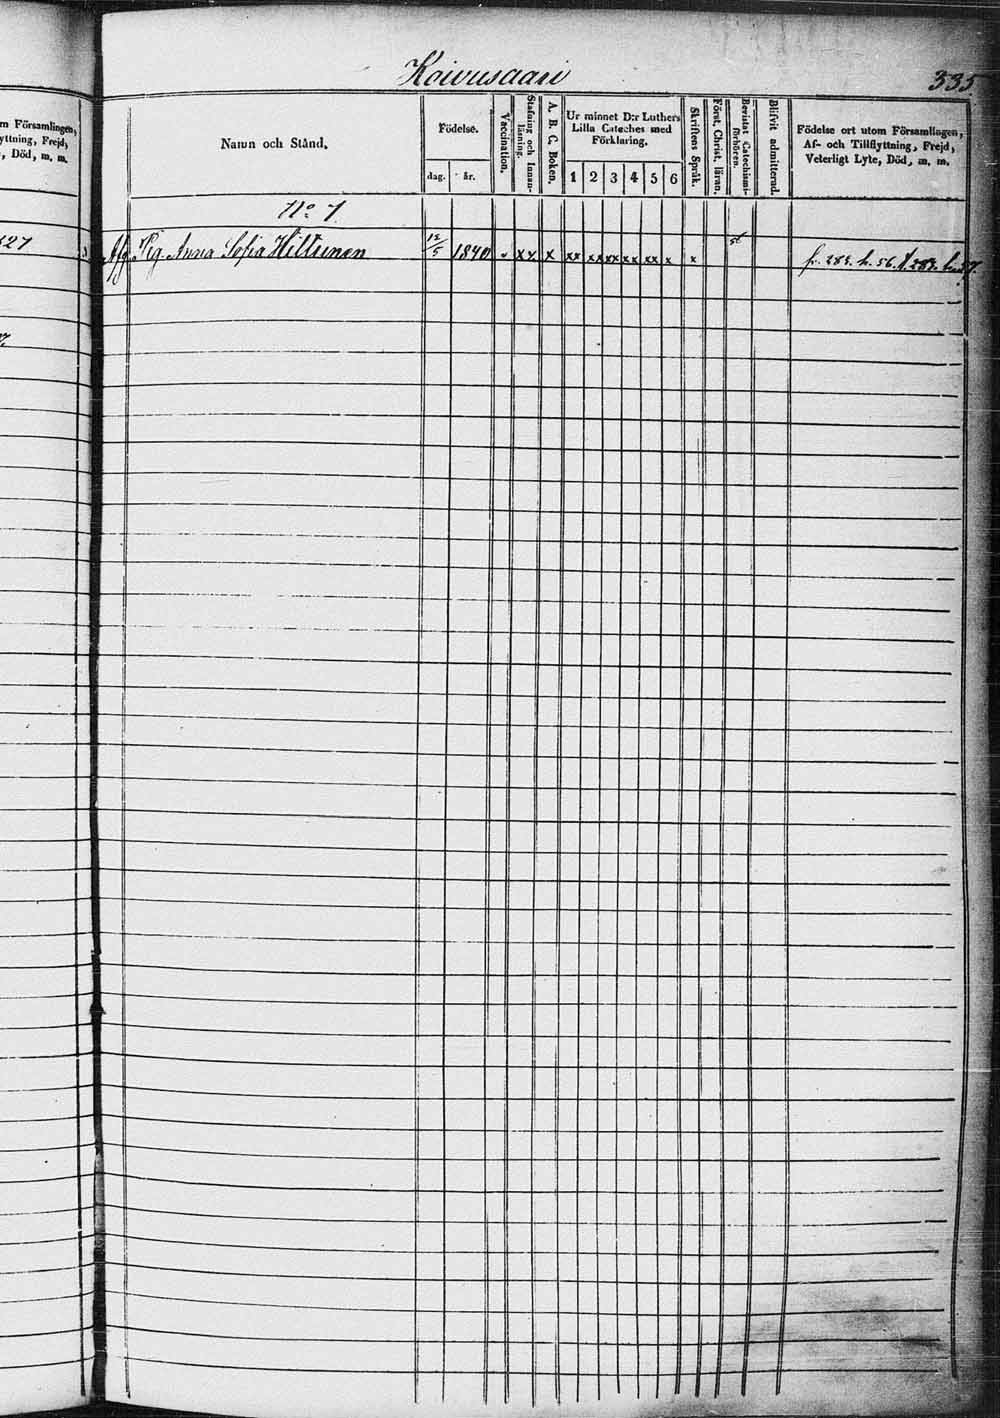 Koivusaari
335
m Församlingen,
yttning, Frejd,
, Död, m. m.
Namn och Stånd.
Födelse.
dag.
år.
Vaccination.
Stafning och Innan-
läsning.
A. B. C. Boken.
Ur minnet D:r Luthers
Lilla Cateches med
Förklaring.
1 2 3 4 5 6
Skriftens Språk.
Först. Christ. läran.
Bevistat Catechismi-
förhören.
Blifvit admitterad.
Födelse ort utom Församlingen,
Af- och Tillflyttning, Frejd,
Veterligt Lyte, Död, m. m.
No 7
327
Afg Pig. Anna Sofia Hiltunen 12/5 1840 x x x xx xx xx xx xx x x 56 fr. 283. h. 56. t. 283.